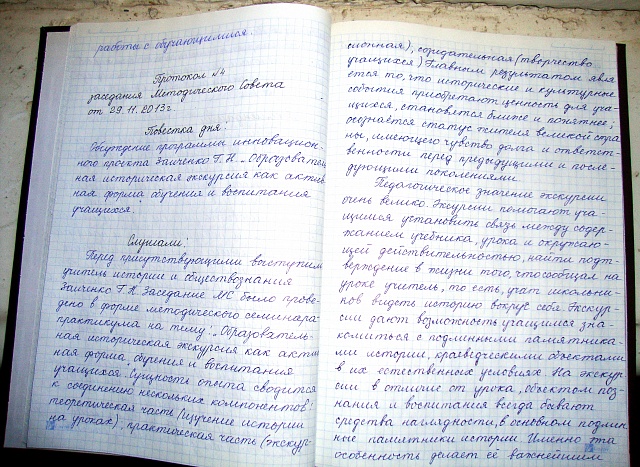 работы с обучающимися.
Протокол №4
заседания Методического Совета
от 29.11.2013г
Повестка дня:
Обсуждение программы инновацион-
ного проекта Заиченко Г.Н. „Образователь
ная историческая экскурсия как актив
ная форма обучения и воспитания
учащихся.
Слушали:
Перед присутствующими выступил
учитель истории и обществознания
Заиченко Г.Н. Заседание МС было прове-
дено в форме методического семинара-
практикума на тему: „Образователь-
ная историческая экскурсия как актив
ная форма обучения и воспитания
учащихся". Сущность опыта сводится
к соединению нескольких компонентов:
теоретическая часть (изучение истории
на уроках), практическая часть (экскур-
сионная), созидательная (творчество
учащихся) Главным результатом явля
ется то, что исторические и культурные
события приобретают ценность для уча-
щихся, становятся ближе и понятнее;
осознаётся статус жителя великой стра
ны, имеющего чувство долга и ответст-
венности перед предыдущими и после-
дующими поколениями.
Педагогическое значение экскурсии
очень велико. Экскурсии помогают уча-
щимся установить связь между содер-
жанием учебника, урока и окружаю-
щей действительностью, найти подт-
верждение в жизни того, что сообщал на
уроке учитель, то есть, учат школьни-
ков видеть историю вокруг себя. Экскур-
сии дают возможность учащимся зна-
комиться с подлинными памятника-
ми истории, краеведческими объектами
в их естественных условиях. На экскур
сии в отличие от урока, объектом поз-
нания и воспитания всегда бывают
средства наглядности, в основном подлин-
ные памятники истории. Именно эта
особенность делает её важнейшим